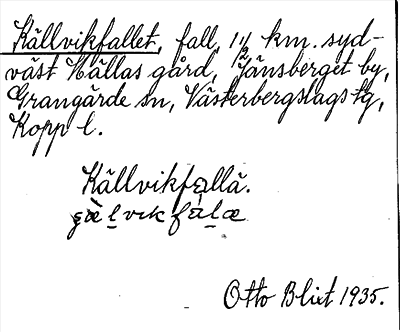 Källvikfallet, fall, 1 1/2 km. syd-
väst Hällas gård, Jänsberget by,
Grangärde sn, Västerbergslags tg,
Kopp l.
Källvikfallä.
Otto Blixt 1935.